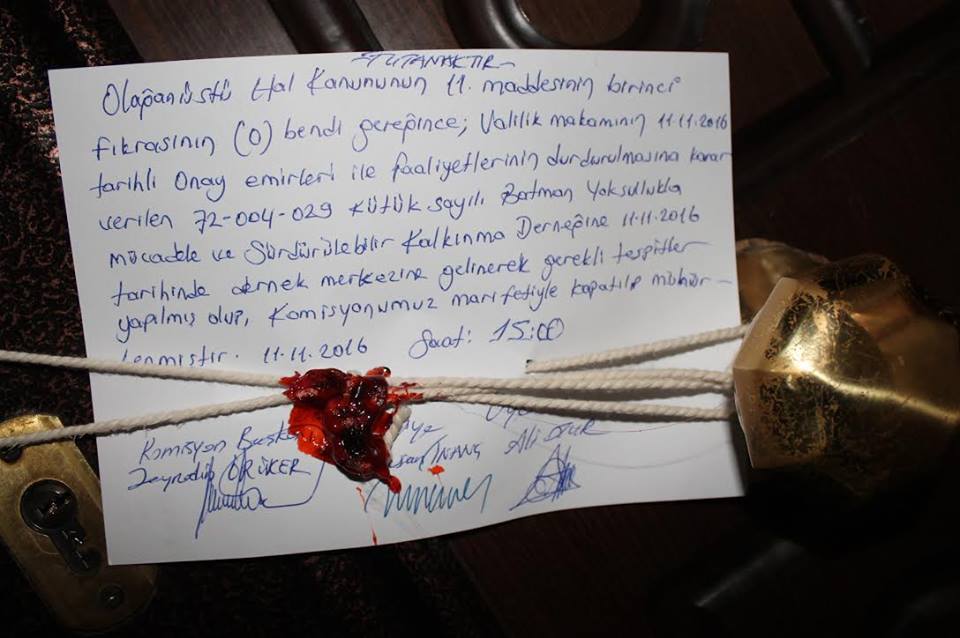 TUTANAKTIR
Olağanüstü Hal Kanununun 11. maddesinin birinci
fıkrasının (O) bendi gereğince; Valilik makamının 11.11.2016
tarihli Onay emirleri ile faaliyetlerinin durdurulmasına karar
verilen 72-004-029 kütük sayılı Batman Yoksullukla
mücadele ve Sürdürülebilir Kalkınma Derneğine 11.11.2016
tarihinde dernek merkezine gelinerek gerekli tespitler
yapılmış olup, Komisyonumuz marifetiyle kapatılıp mühür-
lenmiştir. 11.11.2016 Saat: 15:00
Komisyon Başk